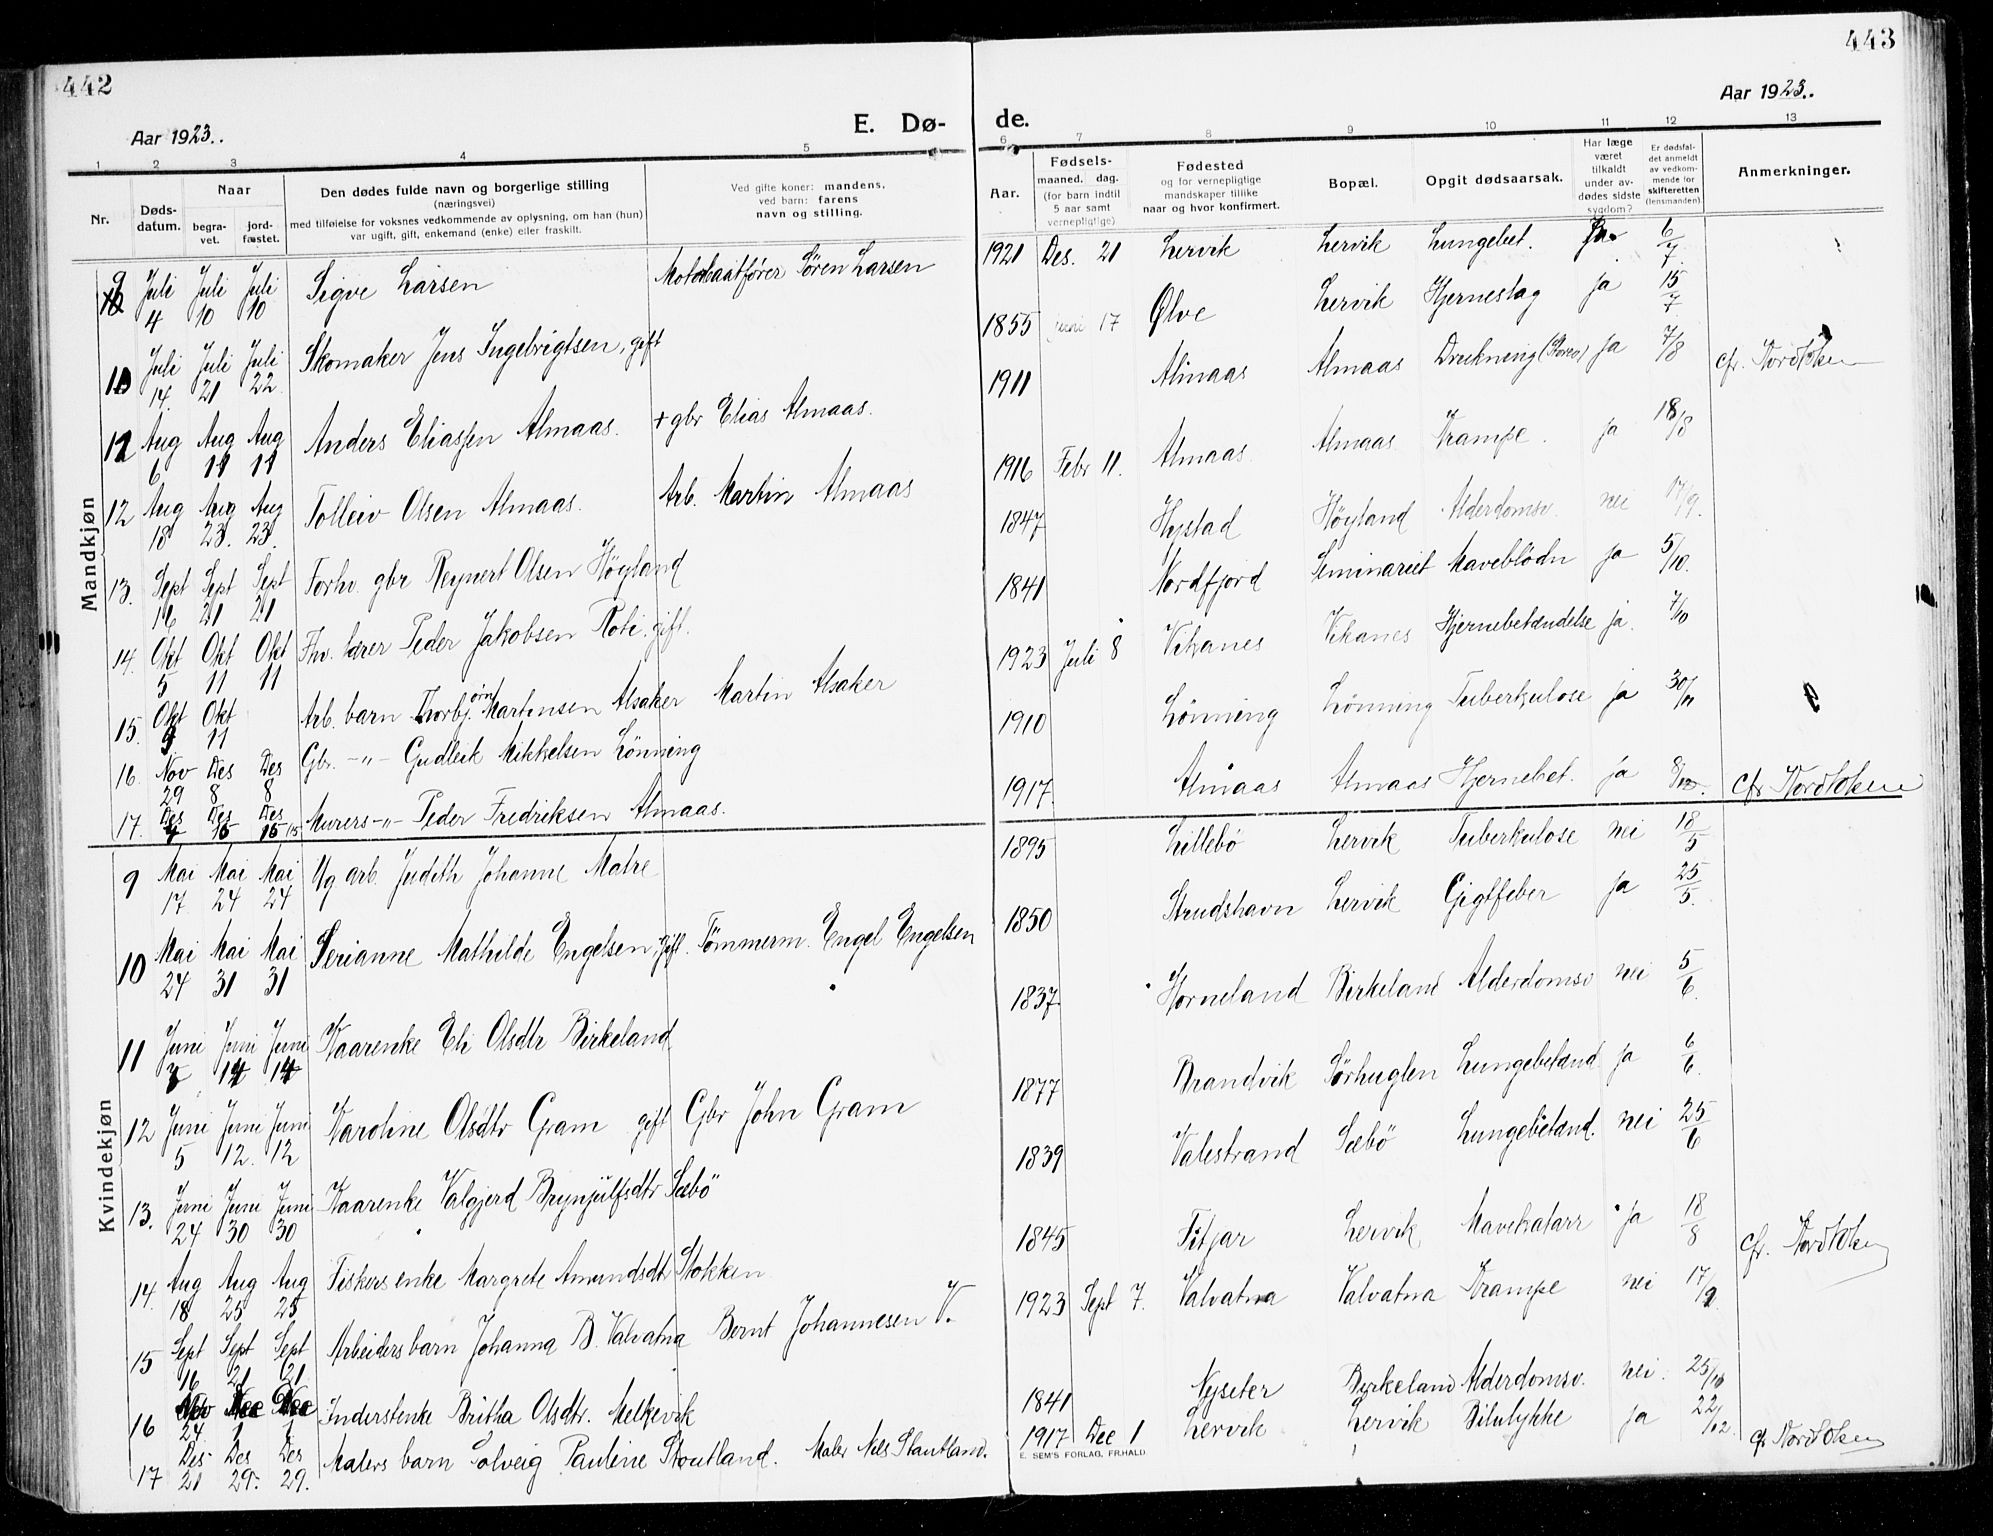 442
443
Aar 1923.
E. Dø-
de.
Aar 1923.
1 2 3 4 5 6 7 8 9 10 11 12 13
Nr.
Døds-
datum.
Naar
begra-
vet.
jord-
fæstet.
Den dødes fulde navn og borgerlige stilling
(næringsvei)
med tilføielse for voksnes vedkommende av oplysning, om han (hun)
var ugift, gift, enkemand (enke) eller fraskilt.
Ved gifte koner: mandens.
ved barn: farens
navn og stilling.
Aar.
Fødsels-
maaned. dag.
(for barn indtil
5 aar samt
vernepligtige)
Fødested
og for vernepligtige
mandskaper tillike
naar og hvor konfirmert.
Bopæl.
Opgit dødsaarsak.
Har læge
været
tilkaldt
under av-
dødes sidste
sygdom?
Er dødsfal-
det anmeldt
av vedkom-
mende for
skifteretten
(lensmanden).
Anmerkninger.
Mandkjøn
9 Juli 4 Juli 10 Juli 10 Sigve Larsen Motorbaatfører Sören Larsen 1921 Des. 21 Lervik Lervik Lungebet. Ja 6/7
10 Juli 14. Juli 21 Juli 22 Skomaker Jens Ingebrigtsen, gift 1855 juni 17 Ølve Lervik Hjerneslag ja 15/7
11 Aug 6 Aug 11 Aug 11 Anders Eliassen Almaas. + gbr Elias Almaas. 1911 Almaas Almaas Drukning (Storen) ja 7/8 cfr. Nord Olsen
12 Aug 18 Aug 23. Aug 23. Tolleiv Olsen Almaas. Arb. Martin Almaas 1916 Febr 11. Almaas Almaas Krampe. ja 18/8
13. Sept 16 Sept 21 Sept 21 Forhv. gbr Reynert Olsen Höyland 1847 Hystad Höyland Alderdomsv. nei 17/9.
14. Okt 5 Okt 11 Okt 11 Fhv. lærer Peder Jakobsen Roti gift. 1841 Nordfjord Seminariet Maveblödn ja 5/10.
15. Okt Okt 11 Arb. barn Thorbjörn Martinsen Alsaker Martin Alsaker 1923 Juli 8 Vikanes Vikanes Hjernebetændelse ja. 7/10
16. Nov 29 Des 8 Des 8 Gbr. -"- Gudleik Mikkelsen Lönning 1910 Lönning Lönning Tuberkulose ja 30/11
17. Des Des 15 Des 15 Murers -"- Peder Fredriksen Almaas. 1917. Almaas Almaas Hjernebet. ja 8/12. Cfr Nord Olsen
Kvindekjøn
9 Mai 17 Mai 24 Mai 24 Ug arb. Judith Johanne Matre 1895 Lillebö Lervik Tuberkulose nei 18/5
10 Mai 24 Mai 31 Mai 31 Serianne Mathilde Engelsen, gift. Tömmerm. Engel Engelsen 1850 Strudshavn Lervik Gigtfeber ja 25/5.
11 Juni Juni 14 Juni 14 Kaarenke Eli Olsdtr Birkeland 1837 Horneland Birkeland Alderdomsv nei 5/6.
12 Juni 5 Juni 12. Juni 12 Karoline Olsdtr Gram gift Gbr John Gram 1877 Brandvik Sörhuglen Lungebetænd. ja 6/6.
13. Juni 24 Juni 30 Juni 30 Kaarenke Valgjerd Brynjulfsdtr Sæbö 1839 Valestrand Sæbö Lungebetænd. nei 25/6
14. Aug 18 Aug 25 Aug 25 Fiskers enke Margrete Amundsdtr Stokken 1845 Fitjar Lervik Mavekatarr ja 18/8 cfr. Nord Olsen
15 Sept 16 Sept 21 Sept 21. Arbeiders barn Johanna B. Valvatna Bernt Johannesen V. 1923 Sept 7. Valvatna Valvatna Krampe nei 17/9
16 Nov 24 Dec 1 Dec 1 Inderstenke Britha Olsdtr. Melkevik 1841 Nyseter Birkeland Alderdomsv. nei. 25/10
17 Des 21 Des 29. Des 29. Malers barn Solveig Pauline Stoutland. Maler Nils Stautland. 1917 Dec 1 Lervik Lervik Bilulykke ja 22/12 cfr Nord Olsen
E. SEM'S FORLAG, FR.HALD